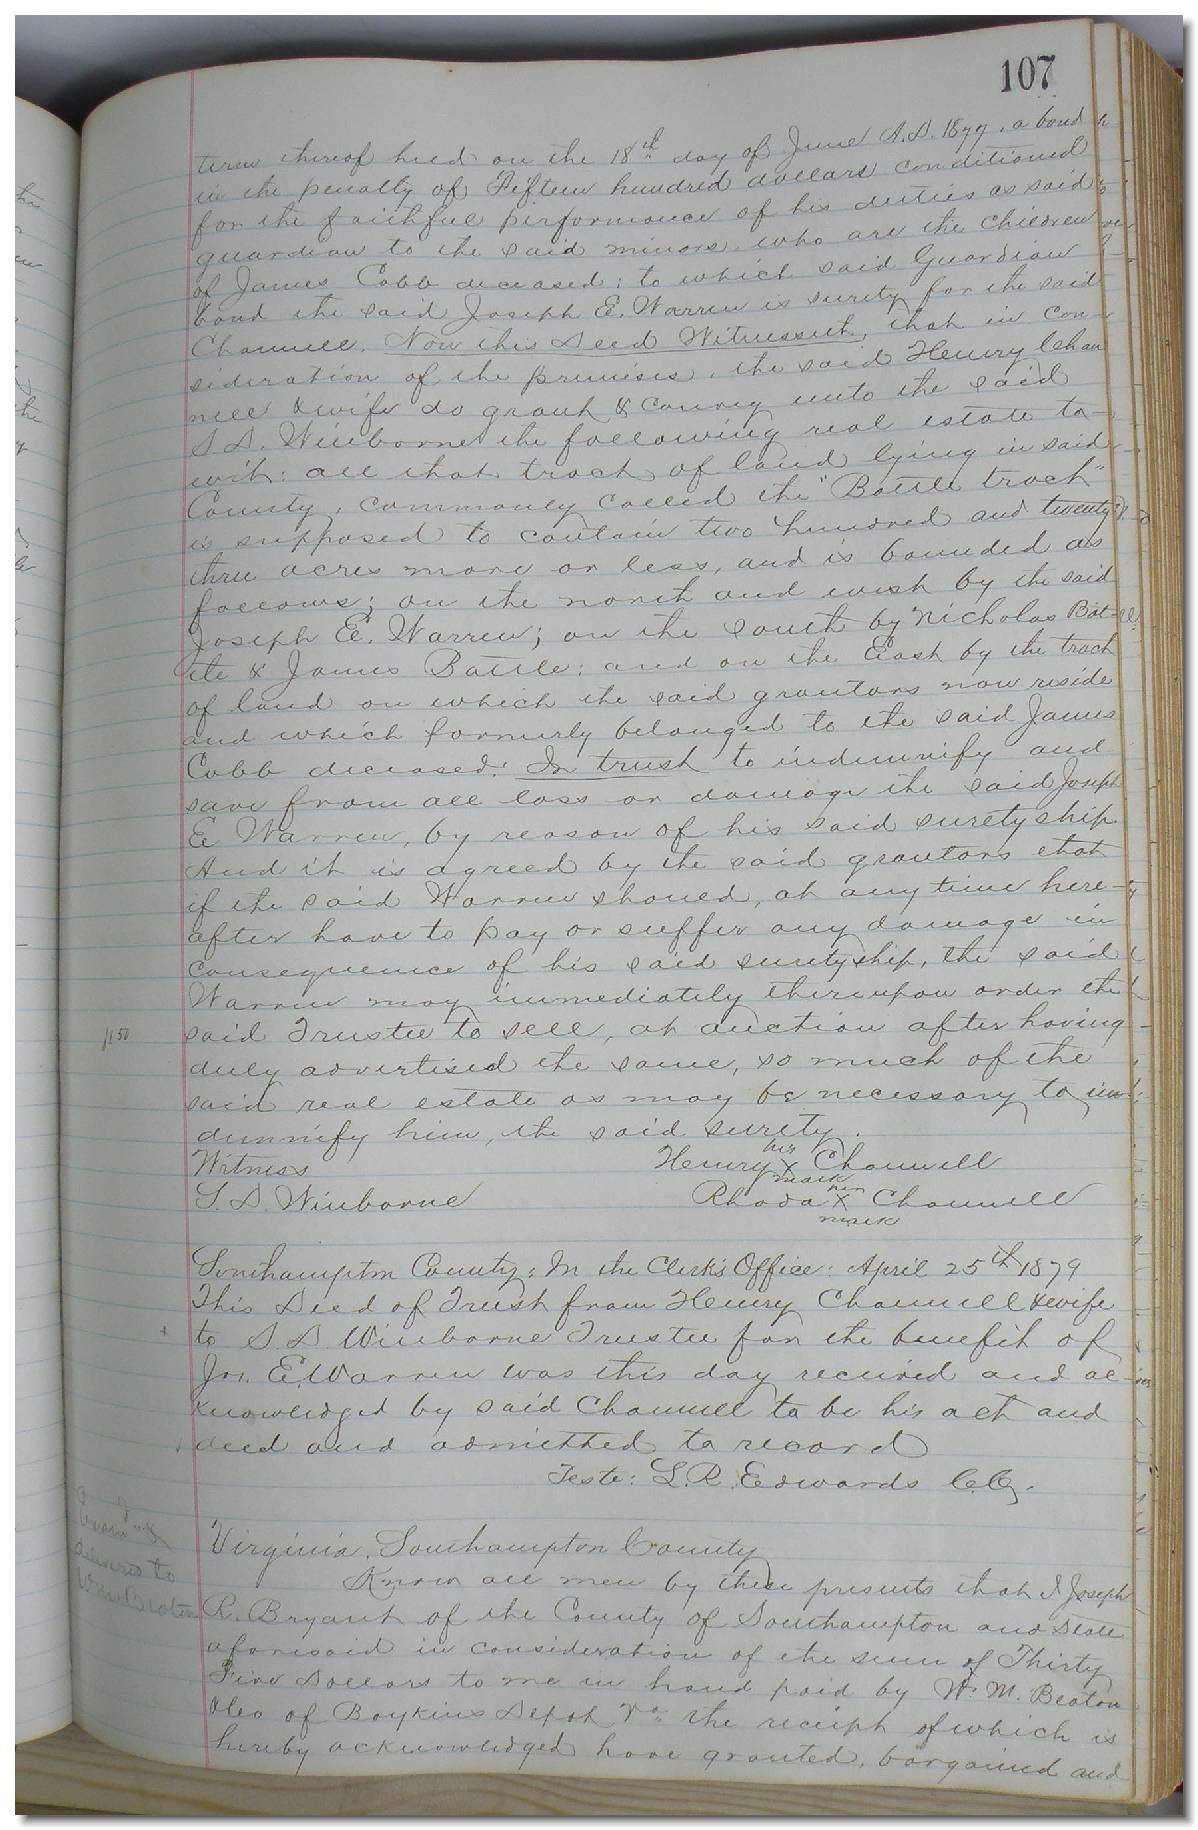 107
term thereof held on the 18th day of June A.D. 1877, a bond
in the penalty of Fifteen hundred dollars conditioned
for the faithful performance of his duties as said
guardian to the said minors who are the children
of James Cobb deceased; to which said Guardian
bond the said Joseph E. Warren is surety for the said
Channell. Now this Deed Witnesseth, that in con-
sideration of the premises, the said Henry Chan
nell & wife do grant & convey unto the said
S. D. Winborne the following real estate to-
wit: all that tract of land lying in said
County, commonly called the "Battle tract"
is supposed to contain two hundred and twenty
three acres more or less, and is bounded as
follows; on the north and west by the said
Joseph E. Warren; on the south by Nicholas Bat-
tle & James Battle: and on the East by the tract
of land on which the said grantors now reside
and which formerly belonged to the said James
Cobb deceased. In trust to indemnify and
save from all loss or damage the said Joseph
E Warren, by reason of his said suretyship
And it is agreed by the said grantors that
if the said Warren should, at any time here-
after have to pay or suffer any damage in
consequence of his said suretyship, the said
Warren may immediately thereupon order the
said Trustee to sell, at auction after having
duly advertised the same, so much of the
said real estate as may be necessary to in-
demnify him, the said surety.
Witness Henry his X mark Channell
S. D. Winborne Rhoda her X mark Channell
Southampton County: In the Clerk's Office: April 25th 1879
This Deed of Trust from Henry Channell & wife
to S D Winborne Trustee for the benefit of
Jos. E. Warren was this day received and ac-
knowledged by said Channell to be his act and
deed and admitted to record
Teste: L. R. Edwards C.C.
delivered to
Wm Beaton
Virginia, Southampton County
Know all men by these presents that I Joseph
R. Bryant of the County of Southampton and State
aforesaid in consideration of the sum of Thirty
Five Dollars to me in hand paid by W. M. Beaton
also of Boykins Depot Va the receipt of which is
hereby acknowledged have granted, bargained and